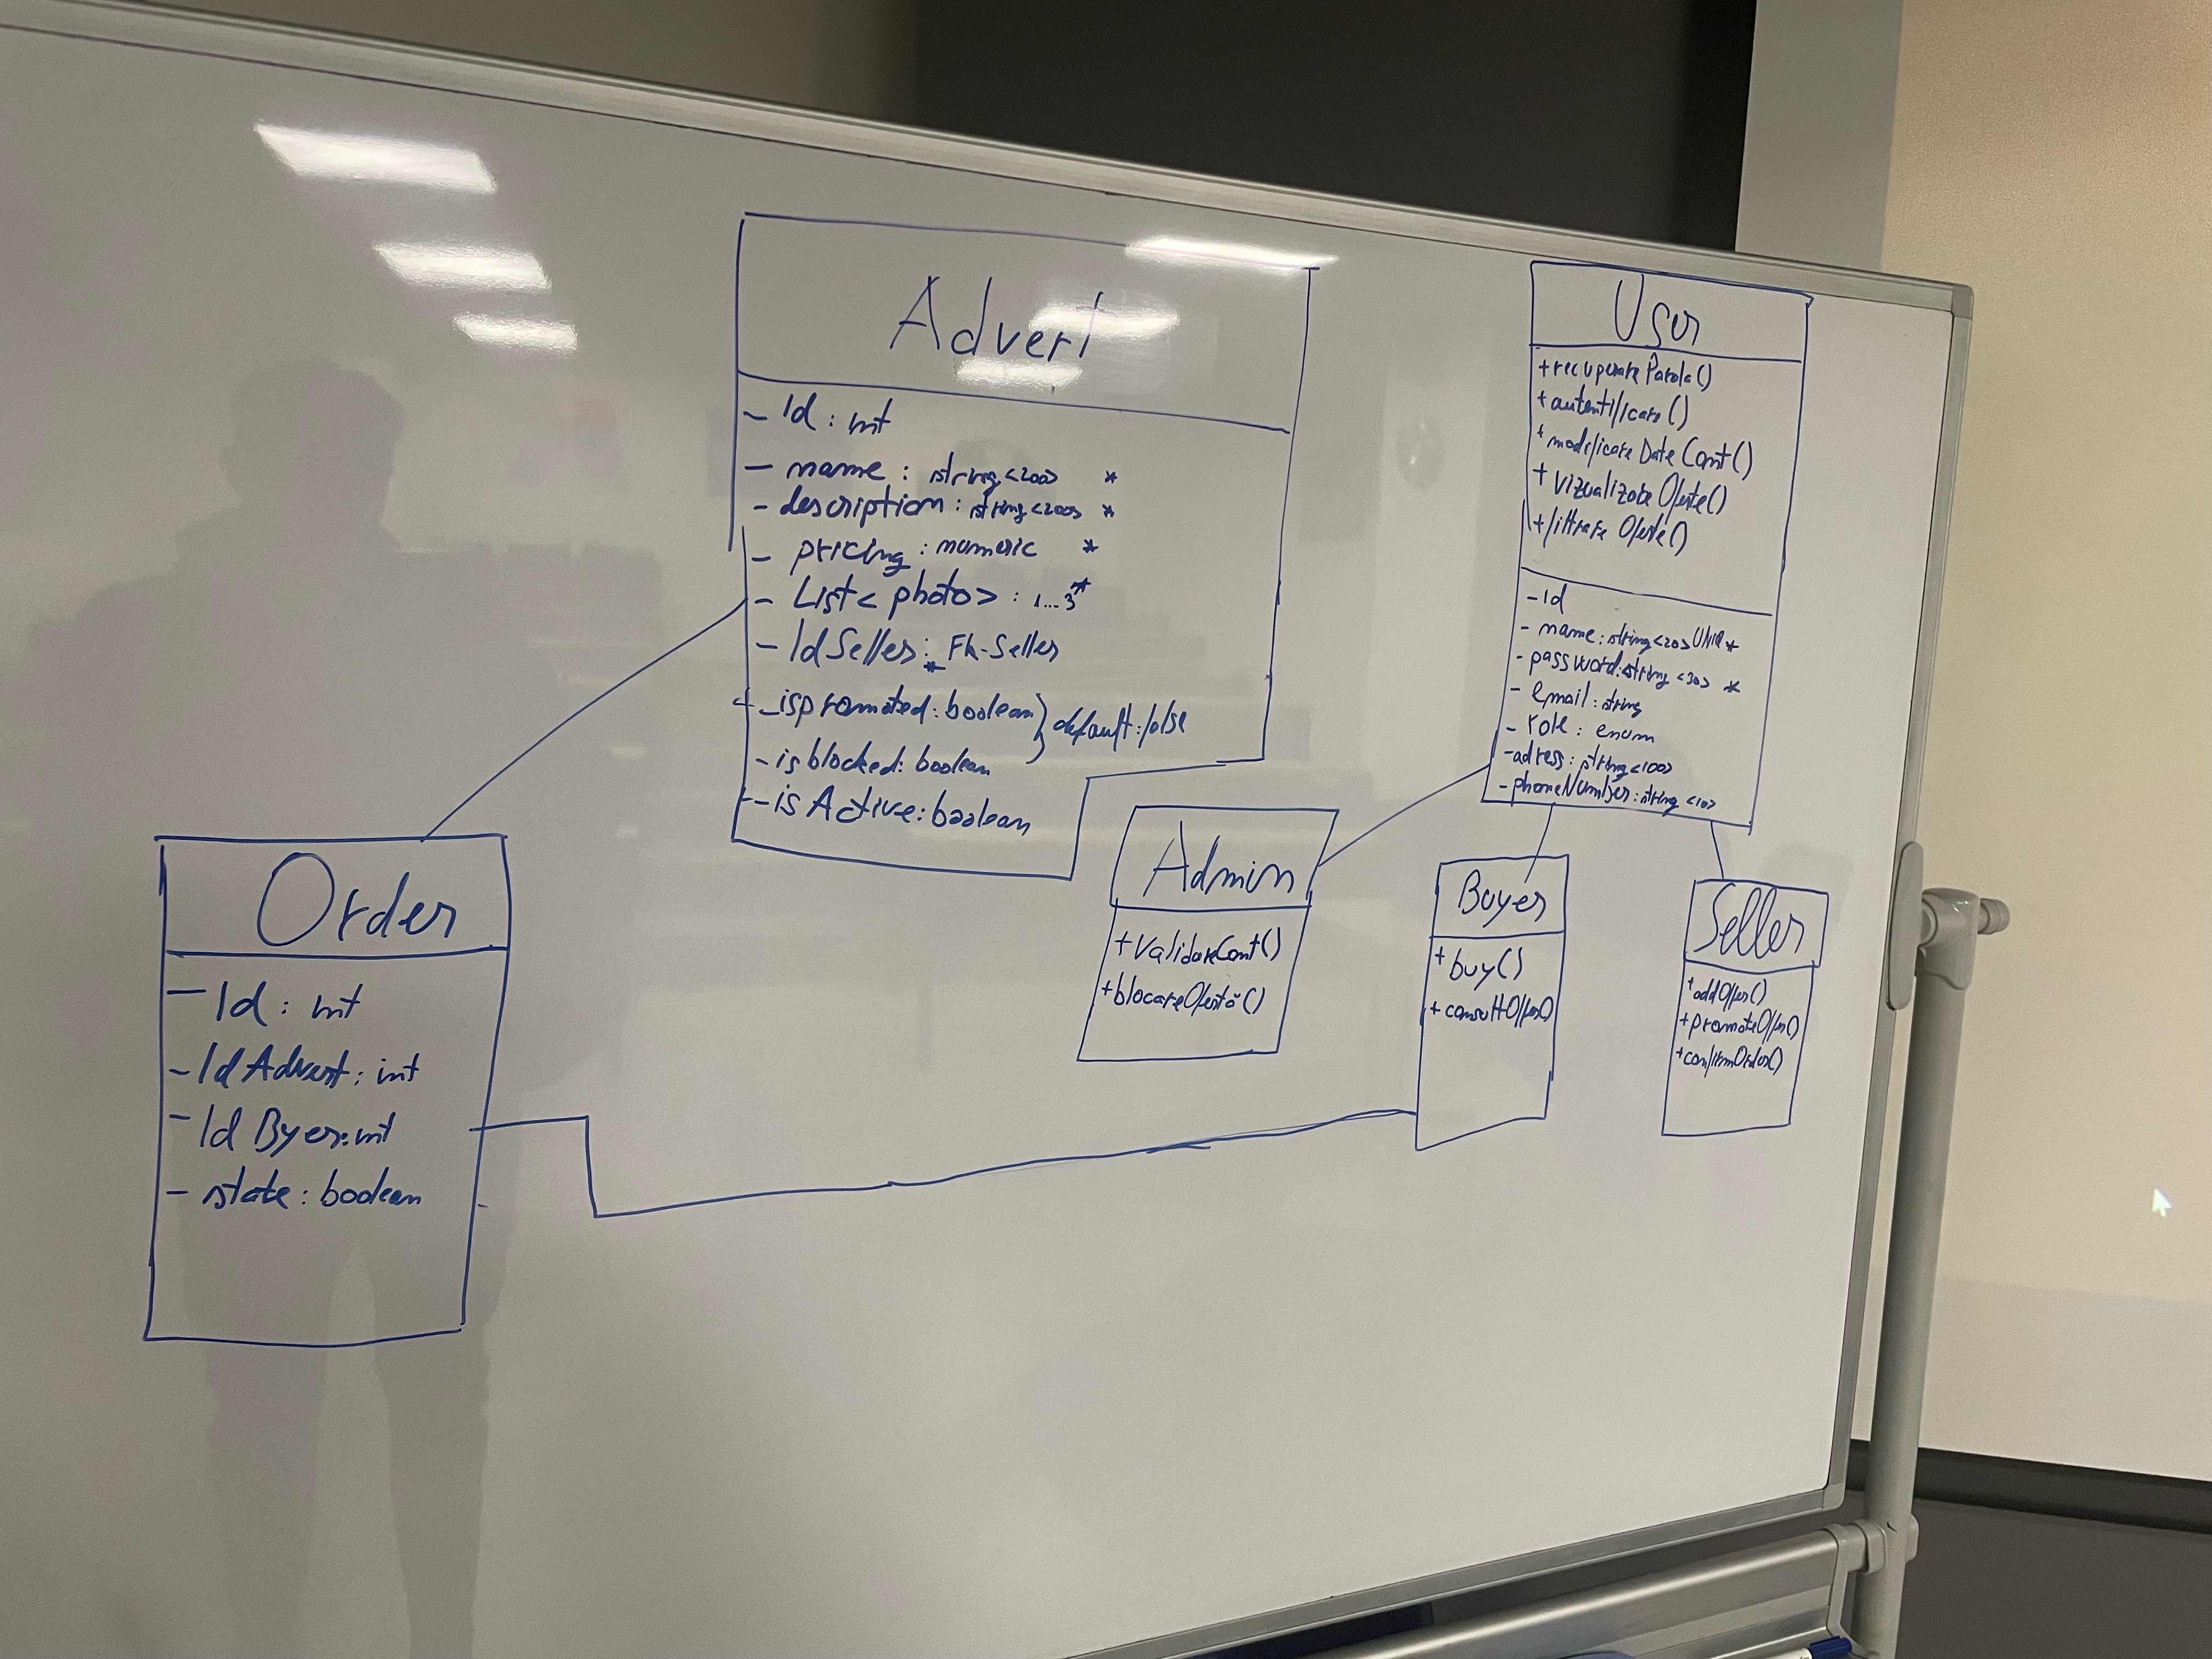 Advert
- Id : int
- name : string<200> *
- description : string<200> *
- pricing : numeric *
- List<photo> : 1...3*
- IdSeller : * FK-Seller
- ispromoted : boolean } default : false
- is blocked : boolean
- is Active : boolean
User
+ recuperare Parola()
+ autentificare()
+ modificare Date Cont()
+ vizualizare Oferte()
+ filtrare Oferte()
- Id
- name : string<20> *
- password : string <30> *
- email : string
- role : enum
- adress : string<100>
- phoneNumber : string <10>
Order
- Id : int
- Id Advert : int
- Id Byer : int
- state : boolean
Admin
+ validareCont()
+ blocareOfertă()
Buyer
+ buy()
+ consultOffer()
Seller
+ addOffer()
+ promoteOffer()
+ confirmOrder()